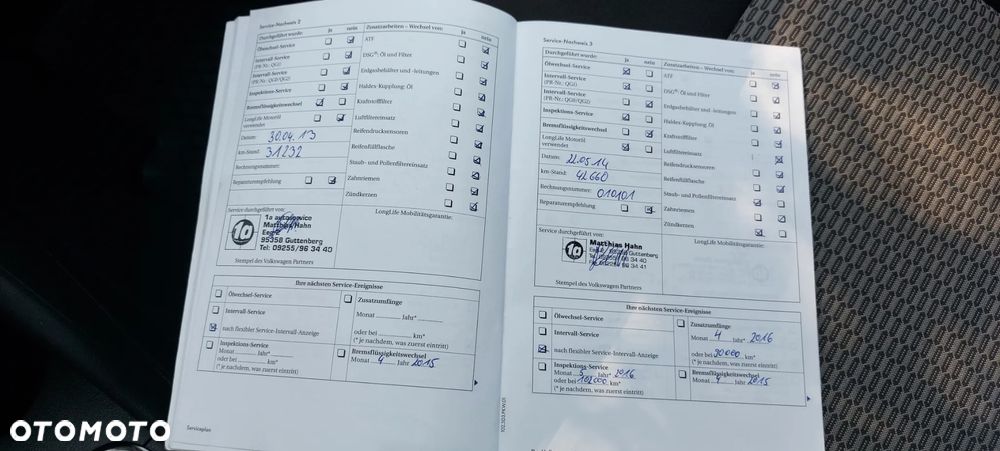 Service-Nachweis 2
Durchgeführt wurde: ja nein
Ölwechsel-Service
Intervall-Service
(PR-Nr.: QG1)
Intervall-Service
(PR-Nr.: QG0/QG2)
Inspektions-Service
Bremsflüssigkeitswechsel
LongLife Motoröl
verwendet
Datum: 30.04.13
km-Stand: 31232
Rechnungsnummer:
Reparaturempfehlung
Zusatzarbeiten – Wechsel von: ja nein
ATF
DSG®: Öl und Filter
Erdgasbehälter und -leitungen
Haldex-Kupplung: Öl
Kraftstofffilter
Luftfiltereinsatz
Reifendrucksensoren
Reifenfüllflasche
Staub- und Pollenfiltereinsatz
Zahnriemen
Zündkerzen
Service durchgeführt von:
1a autoservice
Matthias Hahn
95358 Guttenberg
Tel: 09255/96 34 40
Stempel des Volkswagen Partners
LongLife Mobilitätsgarantie:
Ihre nächsten Service-Ereignisse
Ölwechsel-Service
Intervall-Service
nach flexibler Service-Intervall-Anzeige
Inspektions-Service
Monat Jahr*
oder bei km*
(* je nachdem, was zuerst eintritt)
Zusatzumfänge
Monat Jahr*
oder bei km*
(* je nachdem, was zuerst eintritt)
Bremsflüssigkeitswechsel
Monat 4 Jahr 2015
Serviceplan
Service-Nachweis 3
Durchgeführt wurde: ja nein
Ölwechsel-Service
Intervall-Service
(PR-Nr.: QG1)
Intervall-Service
(PR-Nr.: QG0/QG2)
Inspektions-Service
Bremsflüssigkeitswechsel
LongLife Motoröl
verwendet
Datum: 22.05.14
km-Stand: 42660
Rechnungsnummer: 010101
Reparaturempfehlung
Zusatzarbeiten – Wechsel von: ja nein
ATF
DSG®: Öl und Filter
Erdgasbehälter und -leitungen
Haldex-Kupplung: Öl
Kraftstofffilter
Luftfiltereinsatz
Reifendrucksensoren
Reifenfüllflasche
Staub- und Pollenfiltereinsatz
Zahnriemen
Zündkerzen
Service durchgeführt von:
1a
Matthias Hahn
Guttenberg
Stempel des Volkswagen Partners
LongLife Mobilitätsgarantie:
Ihre nächsten Service-Ereignisse
Ölwechsel-Service
Intervall-Service
nach flexibler Service-Intervall-Anzeige
Inspektions-Service
Monat 5 Jahr* 2016
oder bei 102000 km*
(* je nachdem, was zuerst eintritt)
Zusatzumfänge
Monat 4 Jahr* 2016
oder bei 90000 km*
(* je nachdem, was zuerst eintritt)
Bremsflüssigkeitswechsel
Monat 4 Jahr 2015
OTOMOTO